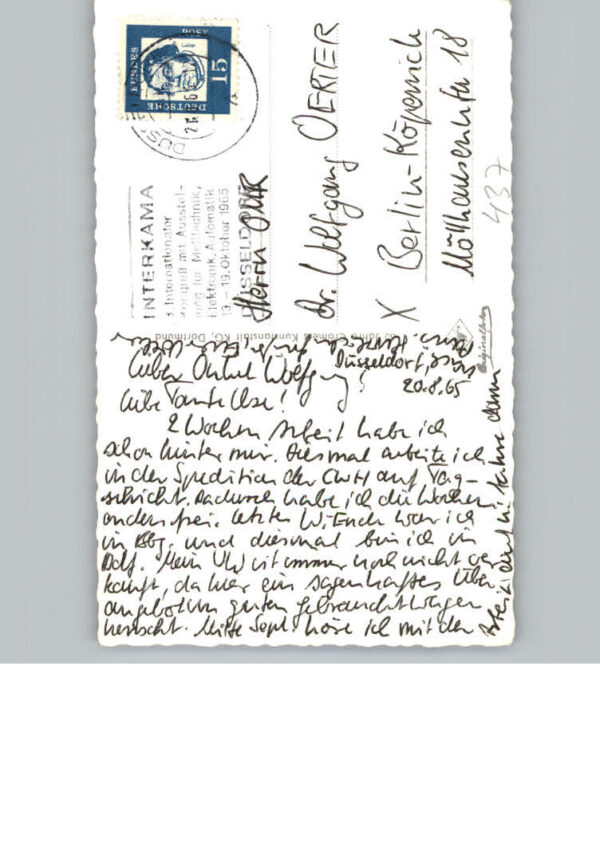 DEUTSCHE
BUNDESPOST
Luther
15
INTERKAMA
3. Internationaler
Kongreß mit Ausstel-
lung für Meßtechnik,
Elektronik, Automatik
13. - 19. Oktober 1965
DÜSSELDORF
Herrn OMR
Dr. Wolfgang OERTER
X Berlin-Köpenick
437
Cramers Kunstanstalt KG, Dortmund
Düsseldorf,
20.8.65
Lieber Onkel Wolfgang!
Liebe Tante Ilse!
2 Wochen Arbeit habe ich
schon hinter mir. Diesmal arbeite ich
in der Spedition der CWH auf Tag-
schicht. Dadurch habe ich die Wochen
enden frei. Letztes W.Ende war ich
in Bbg. und diesmal bin ich in
Ddf. Mein VW ist immer noch nicht ver
kauft, da hier ein sagenhaftes Über
angebot an guten Gebrauchtwagen
herrscht. Mitte Sept. höre ich mit der
Arbeit auf u. fahre dann